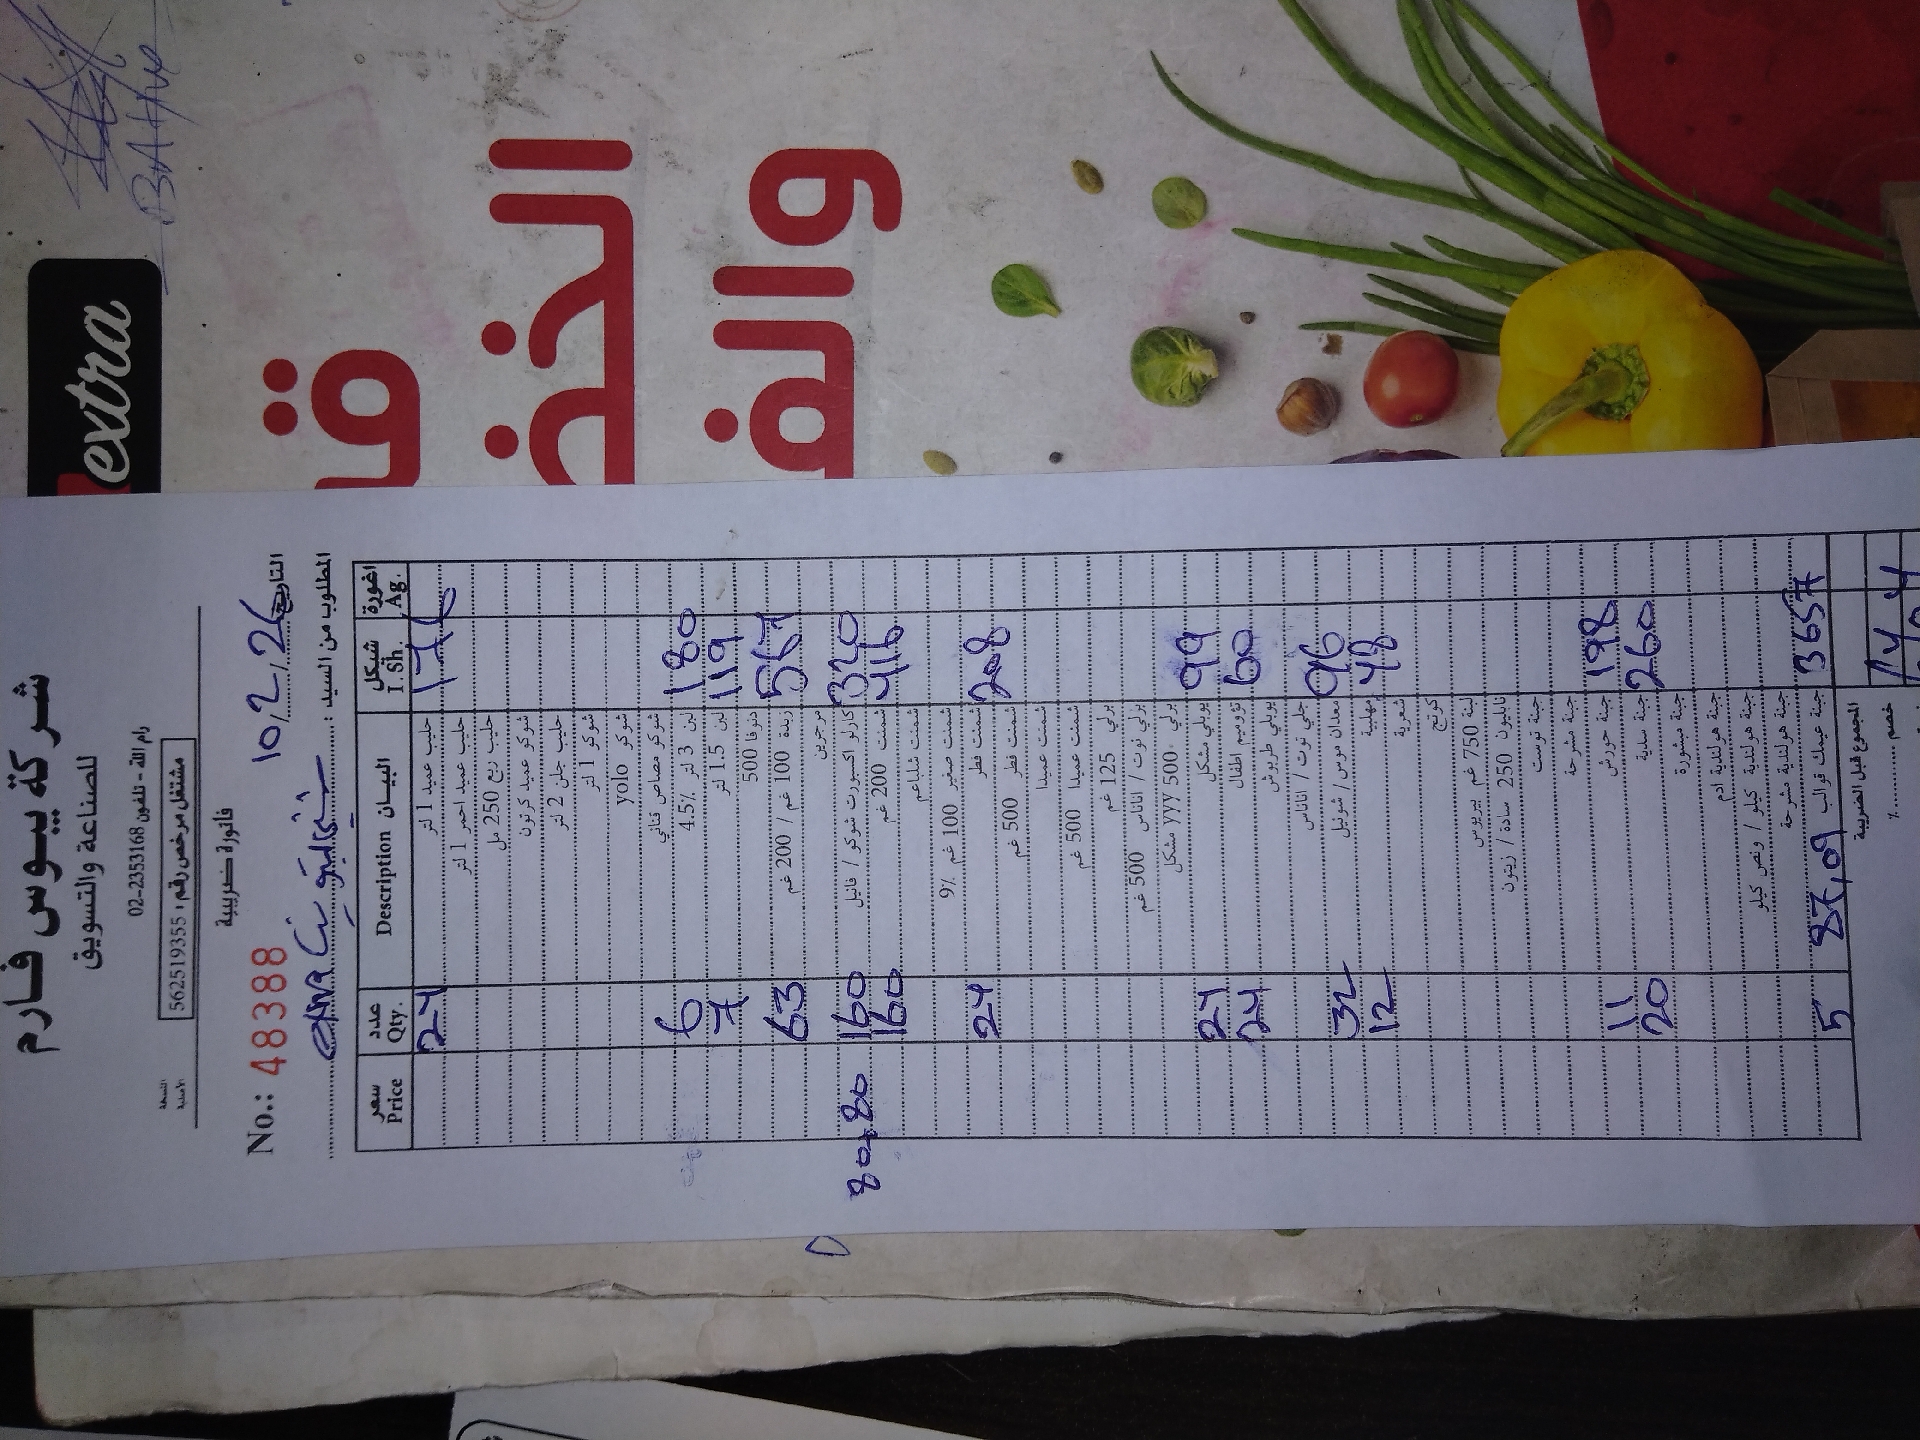 شركة بيوس فارم
للصناعة والتسويق
رام الله - تلفون 02-2353168
مشتغل مرخص رقم: 562519355
فاتورة ضريبية
النسخة
الاصلية
No.: 48388
التاريخ 10/2/26
المطلوب من السيد:
سعر عدد البيان شيكل اغورة
Price Qty. Description I. Sh. Ag.
24 حليب عميد 1 لتر 176
حليب عميد احمر 1 لتر
حليب ربع 250 مل
شوكو عميد كرتون
حليب جلن 2 لتر
شوكو 1 لتر
شوكو yolo
شوكو مصاص قناني
6 لبن 3 لتر 4.5% 180
7 لبن 1.5 لتر 119
دنونا 500
63 زبدة 100 غم / 200 غم 567
مرجرين
80+80 160 كارلو اكسبورت شوكو / فانيل 320
160 شمنت 200 غم 416
شمنت شلباعم
شمنت صغير 100 غم 9%
24 شمنت فطر 208
شمنت فطر 500 غم
شمنت عميدا
شمنت عميدا 500 غم
برلي 125 غم
برلي توت / اناناس 500 غم
برلي 500 yyy مشكل
24 يوبلي مشكل 99
24 تؤوميم اطفال 60
يوبلي طربوش
جلي توت / اناناس
32 معدان موس / شوفيل 96
12 مهلبية 48
شعرية
كوتج
لبنة 750 غم بيريوس
نابليون 250 سادة / زيتون
جبنة توست
جبنة مشرحة
11 جبنة حورش 198
20 جبنة سدية 260
جبنة مبشورة
جبنة هولندية ادم
جبنة هولندية كيلو / ونص كيلو
جبنة هولندية مشرحة
5 87,09 جبنة عيمك قوالب 3657
المجموع قبل الضريبة
خصم ........ %
extra
الخضـ
والفـ
BAHA